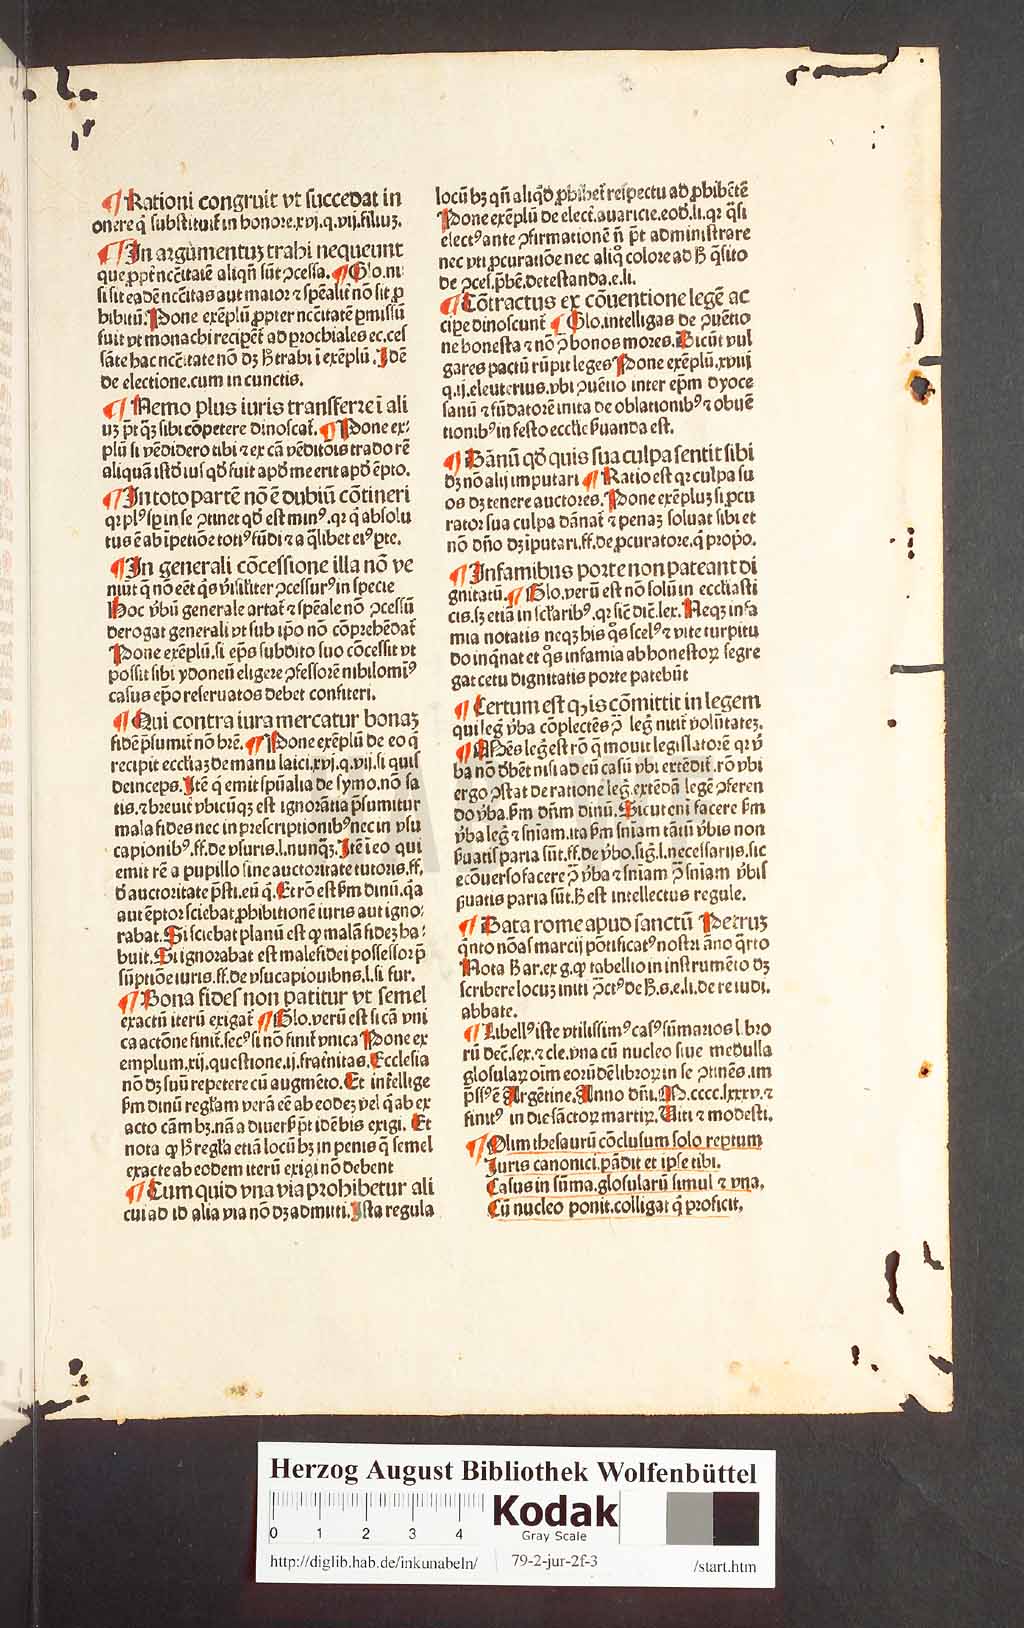 ¶ Rationi congruit vt succedat in
onere q̄ substituit̄ in honore.xvj.q.vij.filiuʒ.
¶ In argumentuʒ trahi nequeunt
que ꝓpt̄ ncc̄itatē aliqn̄ sūt ꝯcessa. ¶ Glo.ni
si sit eadē ncc̄itas aut maior ⁊ sp̄ealit̄ nō sit ꝓ
hibitū. Pone exēplū ꝓpter ncc̄itatē ꝑmissū
fuit vt monachi recipēt ad ꝓchiales ec.ces
sāte hac ncc̄itate nō dʒ h̄ trahi ī exēplū. Idē
de electione.cum in cunctis.
¶ Nemo plus iuris transferre ī ali
uʒ p̄t q̄ʒ sibi cōpetere dinoscat̄. ¶ Pone ex:
plū si vēdidero tibi ⁊ ex cā vēditōis trado rē
aliquā istd̄ ius qd̄ fuit apd̄ me erit apd̄ ēpto.
¶ In toto partē nō ē dubiū cōtineri
qꝛ plꝰ sp̄ in se ꝯtinet qd̄ est minꝰ.qꝛ q̄ absolu
tus ē ab īpetiōe totiꝰ fūdi ⁊ a q̄libet eiꝰ pte.
¶ In generali cōcessione illa nō ve
niūt q̄ nō eēt q̄s v̄isiliter ꝯcessurꝰ in specie
Hoc v̄bū generale artat̄ ⁊ sp̄eale nō ꝯcessū
derogat generali vt sub ip̄o nō cōprehēdat̄
Pone exēplū.si ep̄s subdito suo cōcessit vt
possit sibi ydoneū eligere ꝯfessorē nihilomiꝰ
casus ep̄o reseruatos debet confiteri.
¶ Qui contra iura mercatur bonaʒ
fidē p̄sumit̄ nō hr̄e. ¶ Pone exēplū de eo q̄
recipit eccl̄iaʒ de manu laici.xvj.q.vij.si quis
deinceps. Itē q̄ emit sp̄ualia de symo.nō sa
tis.⁊ breuit̄ vbicūqʒ est ignorātia p̄sumitur
mala fides nec in prescriptionibꝰ nec in vsu
capionibꝰ.ff.de vsuris.l.nunqʒ. Itē ī eo qui
emit rē a pupillo sine auctoritate tutoris.ff.
d̄ auctoritate p̄sti.eū q̄. Et rō est ẜm dinū.q̄a
aut ēptor sciebat ꝓhibitionē iuris aut igno:
rabat. Si sciebat planū est ꝙ malā fideʒ ha:
buit. Si ignorabat est malefidei possessor p̄
sūptiōe iuris.ff.de vsucapiouibns.l.si fur.
¶ Bona fides non patitur vt semel
exactū iterū exigat̄ ¶ Glo.verū est si cā vni
ca actōne finit̄.secꝰ si nō finit̄ vnica Pone ex
emplum.xij.questione.ij.frat̄nitas. Ecclesia
nō dʒ suū repetere cū augmēto. Et intellige
ẜm dinū regl̄am verā eē ab eodeʒ vel q̄ ab ex
acto cām hʒ.nā a diuersꝭ p̄t idē bis exigi. Et
nota ꝙ h̄ regl̄a etiā locū hʒ in penis q̄ semel
exacte ab eodem iterū exigi nō debent
¶ Cum quid vna via prohibetur ali
cui ad id alia via nō dʒ admitti. Ista regula
locū hʒ qn̄ aliq̄d ꝓhibet̄ respectu ad ꝓhibētē
Pone exēplū de elect̄.auaricie.eod̄.li.qꝛ q̄si
electꝰ ante ꝯfirmationē n̄ p̄t administrare
nec vti ꝓcuratiōe nec aliq̄ colore ad h̄ q̄sito
de ꝯces.p̄hē.detestanda.e.li.
¶ Cōtractus ex cōuentione legē ac
cipe dinoscunt̄ ¶ Glo.intelligas de ꝯuētio
ne honesta ⁊ nō ꝯ bonos mores. Dicūt vul
gares pactū rūpit leges Pone exēplū.xviij
q.ij.eleuterius.vbi ꝯuētio inter ep̄m dyoce
sanū ⁊ fūdatorē inita de oblationibꝰ ⁊ obuē
tionibꝰ in festo eccl̄ie ẜuanda est.
¶ Dānū qd̄ quis sua culpa sentit sibi
dʒ nō alij imputari ¶ Ratio est qꝛ culpa su
os dʒ tenere auctores. Pone exēpluʒ si ꝓcu
rator sua culpa dānat̄ ⁊ penaʒ soluat sibi et
nō dn̄o dʒ iputari.ff.de ꝓcuratore.q̄ propo.
¶ Infamibus porte non pateant di
gnitatū. ¶ Glo.verū est nō solū in eccl̄iasti
cis.sʒ etiā in scl̄aribꝰ.qꝛ sic̄ dic̄.lex. Neqʒ infa
mia notatis neqʒ his q̄s scelꝰ ⁊ vite turpitu
do inq̄nat et q̄s infamia ab honestoꝝ segre
gat cetu dignitatis porte patebūt
¶ Certum est ꝙ is cōmittit in legem
qui leḡ v̄ba cōplectēs ꝯ leḡ nitit̄ volūtateʒ.
¶ Mēs leḡ est rō q̄ mouit legislatorē qꝛ v̄
ba nō d̄bēt nisi ad eū casū vbi extēdit̄.rō vbi
ergo ꝯstat de ratione leḡ.extēdā legē ꝯferen
do v̄ba.ẜm dn̄m dinū. Sicut eni facere ẜm
v̄ba leḡ ⁊ sn̄iam.ita ẜm sn̄iam tātū v̄bis non
ẜuatis paria sūt.ff.de v̄bo.siḡ.l.necessarijs.sic
ecōuerso facere ꝯ v̄ba ⁊ sn̄iam ꝯ sn̄iam v̄bis
ẜuatis paria sūt.h̄ est intellectus regule.
¶ Data rome apud sanctū Petruʒ
q̄nto nōas marcij pōtificatꝰ nostri āno q̄rto
Nota h̄ ar.ex g.ꝙ tabellio in instrumēto dʒ
scribere locuʒ initi ꝯct̄ꝰ de h̄.s.e.li.de re iudi.
abbate.
¶ Libellꝰ iste vtilissimꝰ casꝰ sūmarios l.bro
rū dec̄.sex.⁊ cle.vna cū nucleo siue medulla
glosulaꝝ oim eorūdē libroꝝ in se ꝯtinēs.im
p̄ssꝰ ē Argētine. Anno dn̄i. M.cccc.lxxxv.⁊
finitꝰ in die sāctoꝝ martiꝝ. Viti ⁊ modesti.
¶ Olim thesaurū cōclusum solo reptum
Iuris canonici.pādit et ipse tibi.
Casus in sūma.glosularū simul ⁊ vna.
Cū nucleo ponit.colligat q̄ proficit.
Herzog August Bibliothek Wolfenbüttel
0 1 2 3 4
Kodak
Gray Scale
http://diglib.hab.de/inkunabeln/ 79-2-jur-2f-3 /start.htm